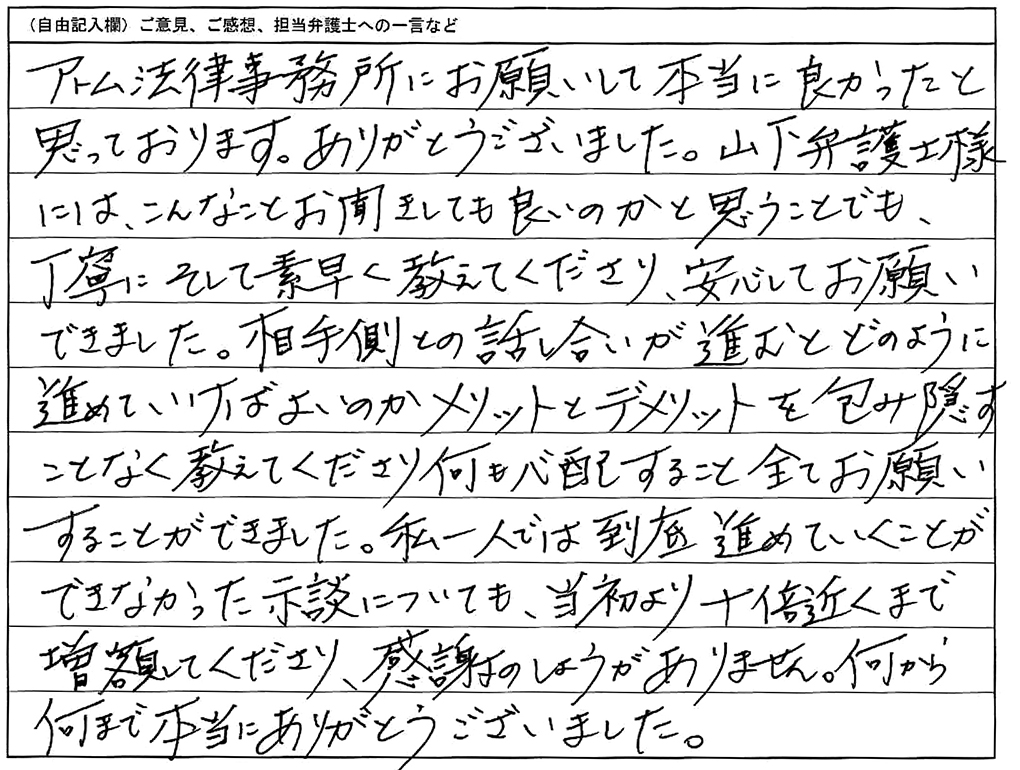 （自由記入欄）ご意見、ご感想、担当弁護士への一言など
アトム法律事務所にお願いして本当に良かったと
思っております。ありがとうございました。山下弁護士様
には、こんなことお聞きしても良いのかと思うことでも、
丁寧にそして素早く教えてくださり、安心してお願い
できました。相手側との話し合いが進むとどのように
進めていけばよいのかメリットとデメリットを包み隠す
ことなく教えてくださり何も心配すること全てお願い
することができました。私一人では到底進めていくことが
できなかった示談についても、当初より十倍近くまで
増額してくださり、感謝のしようがありません。何から
何まで本当にありがとうございました。